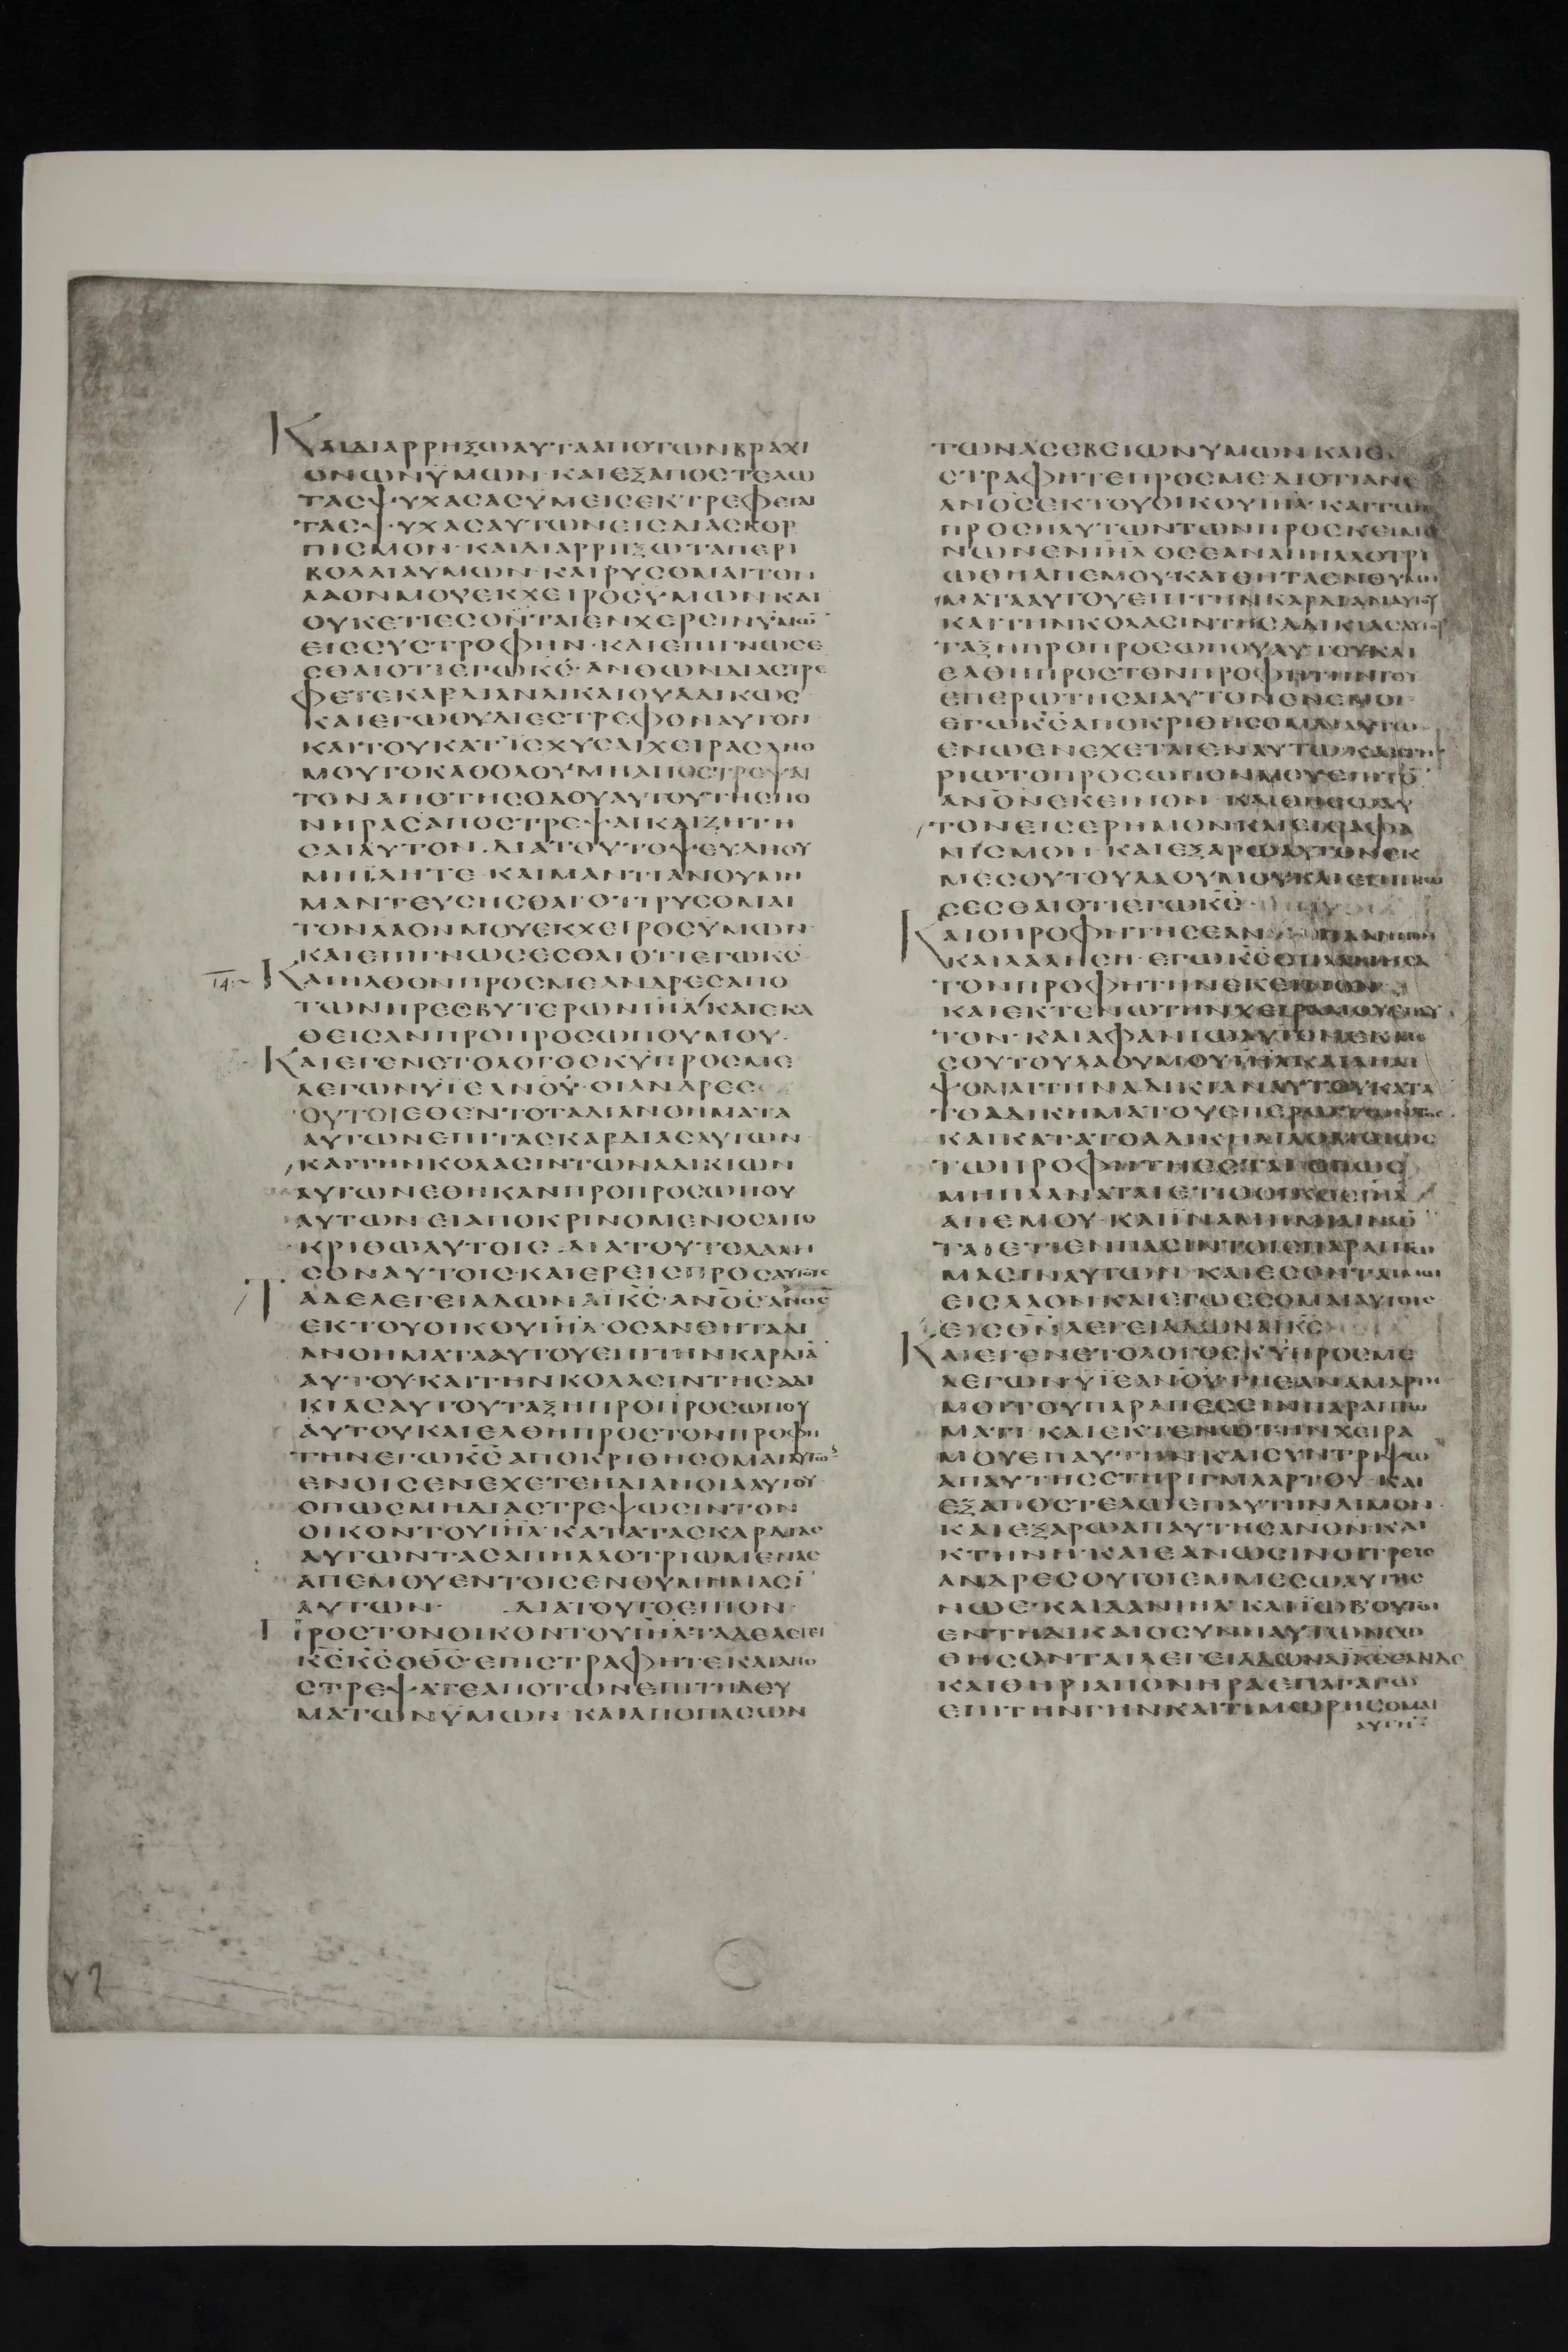 ΚΑΙΔΙΑΡΡΗΞΩΑΥΤΑΑΠΟΤΩΝΒΡΑΧΙ
ΟΝΩΝΫΜΩΝ·ΚΑΙΕΞΑΠΟΣΤΕΛΩ
ΤΑΣΨΥΧΑΣΑΣΫΜΕΙΣΕΚΤΡΕΦΕΤΑΙ
ΤΑΣΨΥΧΑΣΑΥΤΩΝΕΙΣΔΙΑΣΚΟΡ
ΠΙΣΜΟΝ·ΚΑΙΔΙΑΡΡΗΞΩΤΑΠΕΡΙ
ΒΟΛΑΙΑΥΜΩΝ·ΚΑΙΡΥΣΟΜΑΙΤΟΝ
ΛΑΟΝΜΟΥΕΚΧΕΙΡΟΣΥΜΩΝΚΑΙ
ΟΥΚΕΤΙΕΣΟΝΤΑΙΕΝΧΕΡΣΙΝΥΜΩ
ΕΙΣΣΥΣΤΡΟΦΗΝ·ΚΑΙΕΠΙΓΝΩΣΕ
ΣΘΑΙΟΤΙΕΓΩΚΣ·ΑΝΘΩΝΔΙΑΣΤΡΕ
ΦΕΤΕΚΑΡΔΙΑΝΔΙΚΑΙΟΥΑΔΙΚΩΣ
ΚΑΙΕΓΩΟΥΔΙΕΣΤΡΕΦΟΝΑΥΤΟΝ
ΚΑΙΤΟΥΚΑΤΙΣΧΥΣΑΙΧΕΙΡΑΣΑΝΟ
ΜΟΥΤΟΚΑΘΟΛΟΥΜΗΑΠΟΣΤΡΕΨΑΙ
ΤΟΝΑΠΟΤΗΣΟΔΟΥΑΥΤΟΥΤΗΣΠΟ
ΝΗΡΑΣΑΠΟΣΤΡΕΨΑΙΚΑΙΖΗΤΗ
ΣΑΙΑΥΤΟΝ·ΔΙΑΤΟΥΤΟΨΕΥΔΗΟΥ
ΜΗΪΔΗΤΕ·ΚΑΙΜΑΝΤΙΑΝΟΥΜΗ
ΜΑΝΤΕΥΣΗΣΘΑΙΟΤΙΡΥΣΟΜΑΙ
ΤΟΝΛΑΟΝΜΟΥΕΚΧΕΙΡΟΣΥΜΩΝ
ΚΑΙΕΠΙΓΝΩΣΕΣΘΑΙΟΤΙΕΓΩΚΣ
ΚΑΙΗΛΘΟΝΠΡΟΣΜΕΑΝΔΡΕΣΑΠΟ
ΤΩΝΠΡΕΣΒΥΤΕΡΩΝΙΗΛΚΑΙΕΚΑ
ΘΕΙΣΑΝΠΡΟΠΡΟΣΩΠΟΥΜΟΥ·
ΚΑΙΕΓΕΝΕΤΟΛΟΓΟΣΚΥΠΡΟΣΜΕ
ΛΕΓΩΝΥΪΕΑΝΟΥ·ΟΙΑΝΔΡΕΣ
ΟΥΤΟΙΕΘΕΝΤΟΤΑΔΙΑΝΟΗΜΑΤΑ
ΑΥΤΩΝΕΠΙΤΑΣΚΑΡΔΙΑΣΑΥΤΩΝ
ΚΑΙΤΗΝΚΟΛΑΣΙΝΤΩΝΑΔΙΚΙΩΝ
ΑΥΤΩΝΕΘΗΚΑΝΠΡΟΠΡΟΣΩΠΟΥ
ΑΥΤΩΝ·ΕΙΑΠΟΚΡΙΝΟΜΕΝΟΣΑΠΟ
ΚΡΙΘΩΑΥΤΟΙΣ·ΔΙΑΤΟΥΤΟΛΑΛΗ
ΣΟΝΑΥΤΟΙΣ·ΚΑΙΕΡΕΙΣΠΡΟΣΑΥΤΟΥΣ
ΤΑΔΕΛΕΓΕΙΑΔΩΝΑΪΚΣ·ΑΝΟΣΑΝΟΣ
ΕΚΤΟΥΟΙΚΟΥΙΗΛ·ΟΣΑΝΘΗΤΑΔΙ
ΑΝΟΗΜΑΤΑΑΥΤΟΥΕΠΙΤΗΝΚΑΡΔΙΑ
ΑΥΤΟΥ·ΚΑΙΤΗΝΚΟΛΑΣΙΝΤΗΣΑΔΙ
ΚΙΑΣΑΥΤΟΥΤΑΞΗΠΡΟΠΡΟΣΩΠΟΥ
ΑΥΤΟΥΚΑΙΕΛΘΗΠΡΟΣΤΟΝΠΡΟΦΗ
ΤΗΝΕΓΩΚΣΑΠΟΚΡΙΘΗΣΟΜΑΙΑΥΤΩ
ΕΝΟΙΣΕΝΕΧΕΤΕΗΔΙΑΝΟΙΑΑΥΤΟΥ
ΟΠΩΣΜΗΔΙΑΣΤΡΕΨΩΣΙΝΤΟΝ
ΟΙΚΟΝΤΟΥΙΗΛ·ΚΑΤΑΤΑΣΚΑΡΔΙΑΣ
ΑΥΤΩΝΤΑΣΑΠΗΛΛΟΤΡΙΩΜΕΝΑΣ
ΑΠΕΜΟΥΕΝΤΟΙΣΕΝΘΥΜΗΜΑΣΙ
ΑΥΤΩΝ· ΔΙΑΤΟΥΤΟΕΙΠΟΝ
ΠΡΟΣΤΟΝΟΙΚΟΝΤΟΥΙΗΛ·ΤΑΔΕΛΕΓΕΙ
ΚΣΚΣΟΘΣ·ΕΠΙΣΤΡΑΦΗΤΕΚΑΙΑΠΟ
ΣΤΡΕΨΑΤΕΑΠΟΤΩΝΕΠΙΤΗΔΕΥ
ΜΑΤΩΝΫΜΩΝ·ΚΑΙΑΠΟΠΑΣΩΝ
ΤΩΝΑΣΕΒΕΙΩΝΥΜΩΝ·ΚΑΙΕ
ΣΤΡΑΦΗΤΕΠΡΟΣΜΕΔΙΟΤΙΑΝΟ
ΑΝΟΣΕΚΤΟΥΟΙΚΟΥΙΗΛ·ΚΑΙΤΩΝ
ΠΡΟΣΗΛΥΤΩΝΤΩΝΠΡΟΣΚΕΙΜΕ
ΝΩΝΕΝΙΗΛΟΣΕΑΝΑΠΗΛΛΟΤΡΙ
ΩΘΗΑΠΕΜΟΥ·ΚΑΙΘΗΤΑΕΝΘΥΜΗ
ΜΑΤΑΑΥΤΟΥΕΠΙΤΗΝΚΑΡΔΙΑΝΑΥΤΟΥ
ΚΑΙΤΗΝΚΟΛΑΣΙΝΤΗΣΑΔΙΚΙΑΣΑΥΤΟΥ
ΤΑΞΗΠΡΟΠΡΟΣΩΠΟΥΑΥΤΟΥΚΑΙ
ΕΛΘΗΠΡΟΣΤΟΝΠΡΟΦΗΤΗΝΤΟΥ
ΕΠΕΡΩΤΗΣΑΙΑΥΤΟΝΕΝΕΜΟΙ·
ΕΓΩΚΣΑΠΟΚΡΙΘΗΣΟΜΑΙΑΥΤΩ
ΕΝΩΕΝΕΧΕΤΑΙΕΝΑΥΤΩ·ΚΑΙΣΤΗ
ΡΙΩΤΟΠΡΟΣΩΠΟΝΜΟΥΕΠΙΤΟ
ΑΝΟΝΕΚΕΙΝΟΝ·ΚΑΙΘΗΣΩΑΥ
ΤΟΝΕΙΣΕΡΗΜΟΝΚΑΙΕΙΣΑΦΑ
ΝΙΣΜΟΝ·ΚΑΙΕΞΑΡΩΑΥΤΟΝΕΚ
ΜΕΣΟΥΤΟΥΛΑΟΥΜΟΥΚΑΙΕΠΙΓΝΩ
ΣΕΣΘΑΙΟΤΙΕΓΩΚΣ
ΚΑΙΟΠΡΟΦΗΤΗΣΕΑΝ
ΚΑΙΛΑΛΗΣΗ·ΕΓΩΚΣΕΠΛΑΝΗΣΑ
ΤΟΝΠΡΟΦΗΤΗΝΕΚΕΙΝΟΝ
ΚΑΙΕΚΤΕΝΩΤΗΝΧΕΙΡΑΜΟΥΕΠΑΥ
ΤΟΝ·ΚΑΙΑΦΑΝΙΩΑΥΤΟΝΕΚΜΕ
ΣΟΥΤΟΥΛΑΟΥΜΟΥΙΗΛΚΑΙΛΗΜ
ΨΟΜΑΙΤΗΝΑΔΙΚΙΑΝΑΥΤΟΥΚΑΤΑ
ΤΟΑΔΙΚΗΜΑΤΟΥΕΠΕΡΩΤΩΝΤΟΣ
ΚΑΙΚΑΤΑΤΟΑΔΙΚΗΜΑΟΜΟΙΩΣ
ΤΩΠΡΟΦΗΤΗΕΣΤΑΙΟΠΩΣ
ΜΗΠΛΑΝΑΤΑΙΕΤΙΟΟΙΚΟΣΙΗΛ
ΑΠΕΜΟΥ·ΚΑΙΪΝΑΜΗΜΙΑΙΝΩ
ΤΑΙΕΤΙΕΝΠΑΣΙΝΤΟΙΣΠΑΡΑΠΤΩ
ΜΑΣΙΝΑΥΤΩΝ·ΚΑΙΕΣΟΝΤΑΙΜΟΙ
ΕΙΣΛΑΟΝΚΑΙΕΓΩΕΣΟΜΑΙΑΥΤΟΙΣ
ΕΙΣΘΝΛΕΓΕΙΑΔΩΝΑΪΚΣ
ΚΑΙΕΓΕΝΕΤΟΛΟΓΟΣΚΥΠΡΟΣΜΕ
ΛΕΓΩΝΥΪΕΑΝΟΥ·ΓΗΕΑΝΑΜΑΡΤΗ
ΜΟΙΤΟΥΠΑΡΑΠΕΣΕΙΝΠΑΡΑΠΤΩ
ΜΑΤΙ·ΚΑΙΕΚΤΕΝΩΤΗΝΧΕΙΡΑ
ΜΟΥΕΠΑΥΤΗΝΚΑΙΣΥΝΤΡΙΨΩ
ΑΠΑΥΤΗΣΣΤΗΡΙΓΜΑΑΡΤΟΥ·ΚΑΙ
ΕΞΑΠΟΣΤΕΛΩΕΠΑΥΤΗΝΛΙΜΟΝ·
ΚΑΙΕΞΑΡΩΑΠΑΥΤΗΣΑΝΟΝΚΑΙ
ΚΤΗΝΗ·ΚΑΙΕΑΝΩΣΙΝΟΙΤΡΕΙΣ
ΑΝΔΡΕΣΟΥΤΟΙΕΜΜΕΣΩΑΥΤΗΣ
ΝΩΕ·ΚΑΙΔΑΝΙΗΛ·ΚΑΙΪΩΒ·ΟΥΤΟΙ
ΕΝΤΗΔΙΚΑΙΟΣΥΝΗΑΥΤΩΝΣΩ
ΘΗΣΟΝΤΑΙΛΕΓΕΙΑΔΩΝΑΪΚΣΕΑΝΔΕ
ΚΑΙΘΗΡΙΑΠΟΝΗΡΑΕΠΑΓΑΓΩ
ΕΠΙΤΗΝΓΗΝΚΑΙΤΙΜΩΡΗΣΟΜΑΙ
ΑΥΤΗ